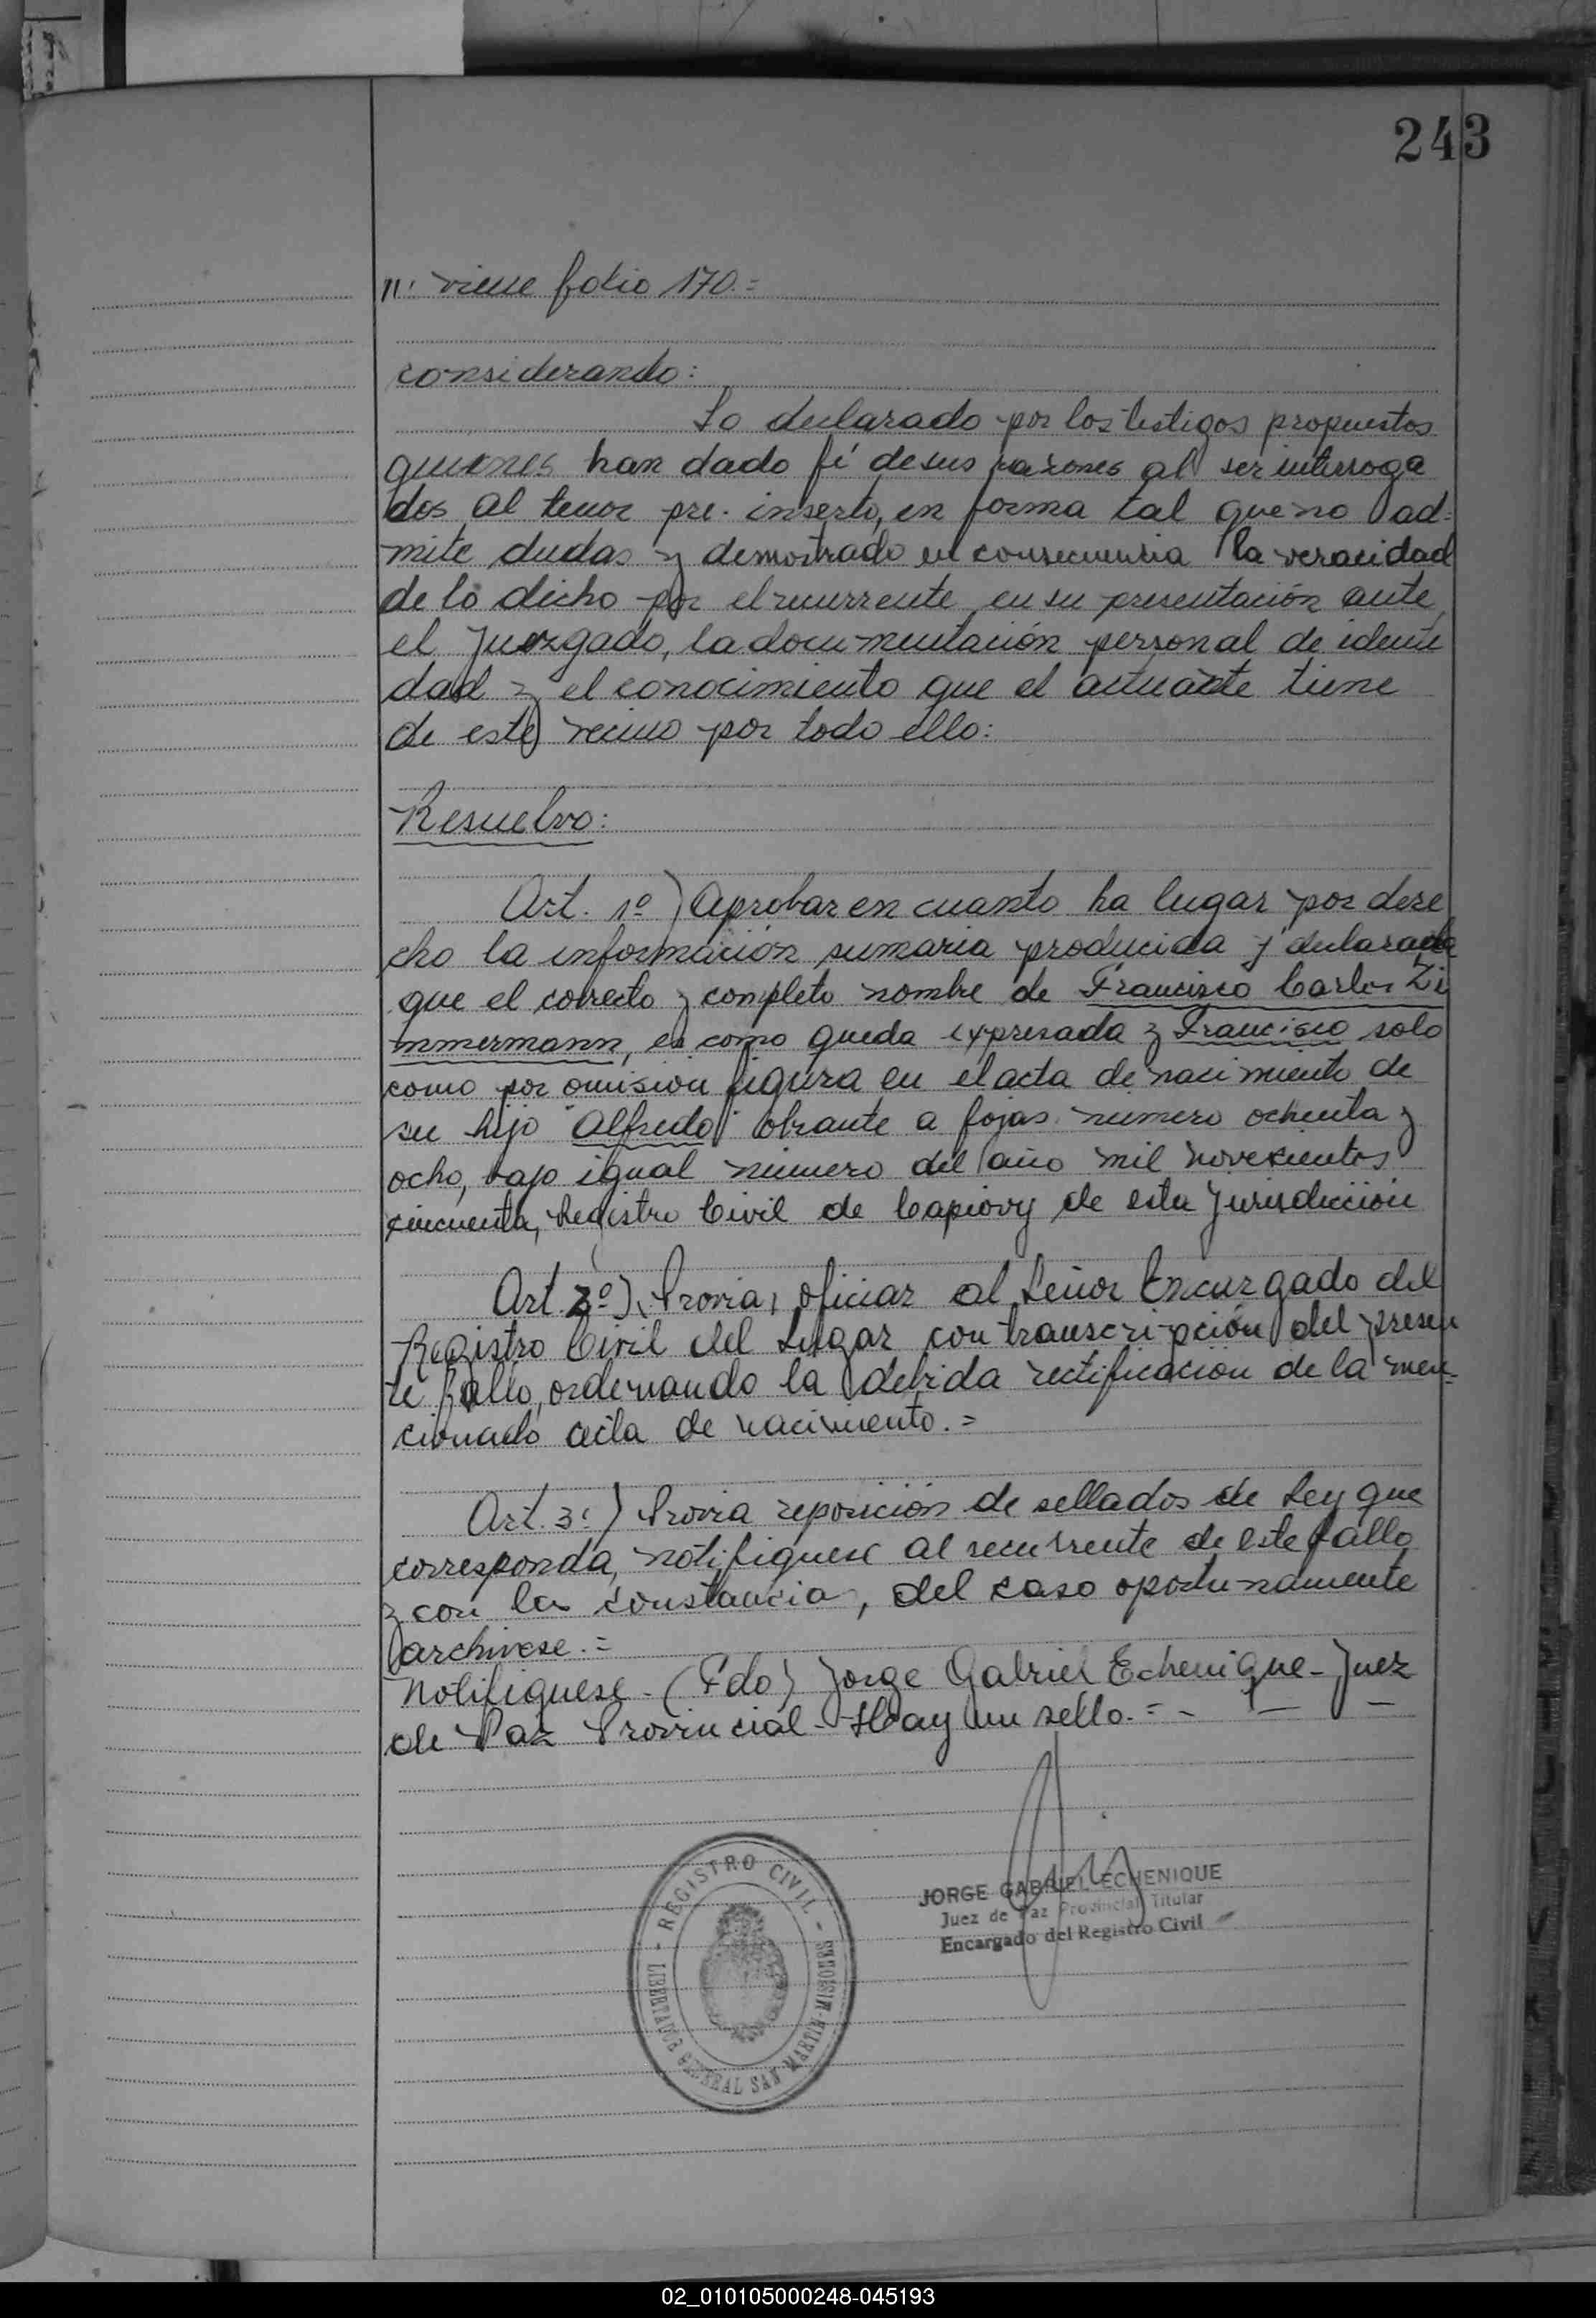 243
n: viene folio 170.=
considerando:
Lo declarado por los testigos propuestos
quienes han dado fé de sus razones al ser interroga
dos al tenor pre. inserto, en forma tal que no ad-
mite dudas y demostrado en consecuencia la veracidad
de lo dicho por el recurrente en su presentación ante
el Juzgado, la documentación personal de identi
dad y el conocimiento que el actuante tiene
de este vecino por todo ello:
Resuelvo:
Art. 1º) Aprobar en cuanto ha lugar por dere
cho la información sumaria producida y declarada
que el correcto y completo nombre de Francisco Carlos Zi
mmermann, es como queda expresada y Francisco solo
como por omision figura en el acta de nacimiento de
su hijo "Alfredo" obrante a fojas número ochenta y
ocho, bajo igual número del año mil novecientos
cincuenta, Registro Civil de Capiovy de esta Jurisdicción
Art. 2º) Previa, oficiar al Señor Encargado del
Registro Civil del Lugar con transcripción del presen
te fallo, ordenando la debida rectificación de la men-
cionado acta de nacimiento.=
Art. 3º) Previa reposición de sellados de Ley que
corresponda, notifiquese al recurrente de este fallo
y con las constancia, del caso oportunamente
archivese.=
Notifiquese - (Fdo) Jorge Gabriel Echenique - Juez
de Paz Provincial - Hay un sello.= - - -
JORGE GABRIEL ECHENIQUE
Juez de Paz Provincial Titular
Encargado del Registro Civil
- REGISTRO CIVIL -
LIBERTADOR GENERAL SAN MARTIN-MISIONES
02_010105000248-045193